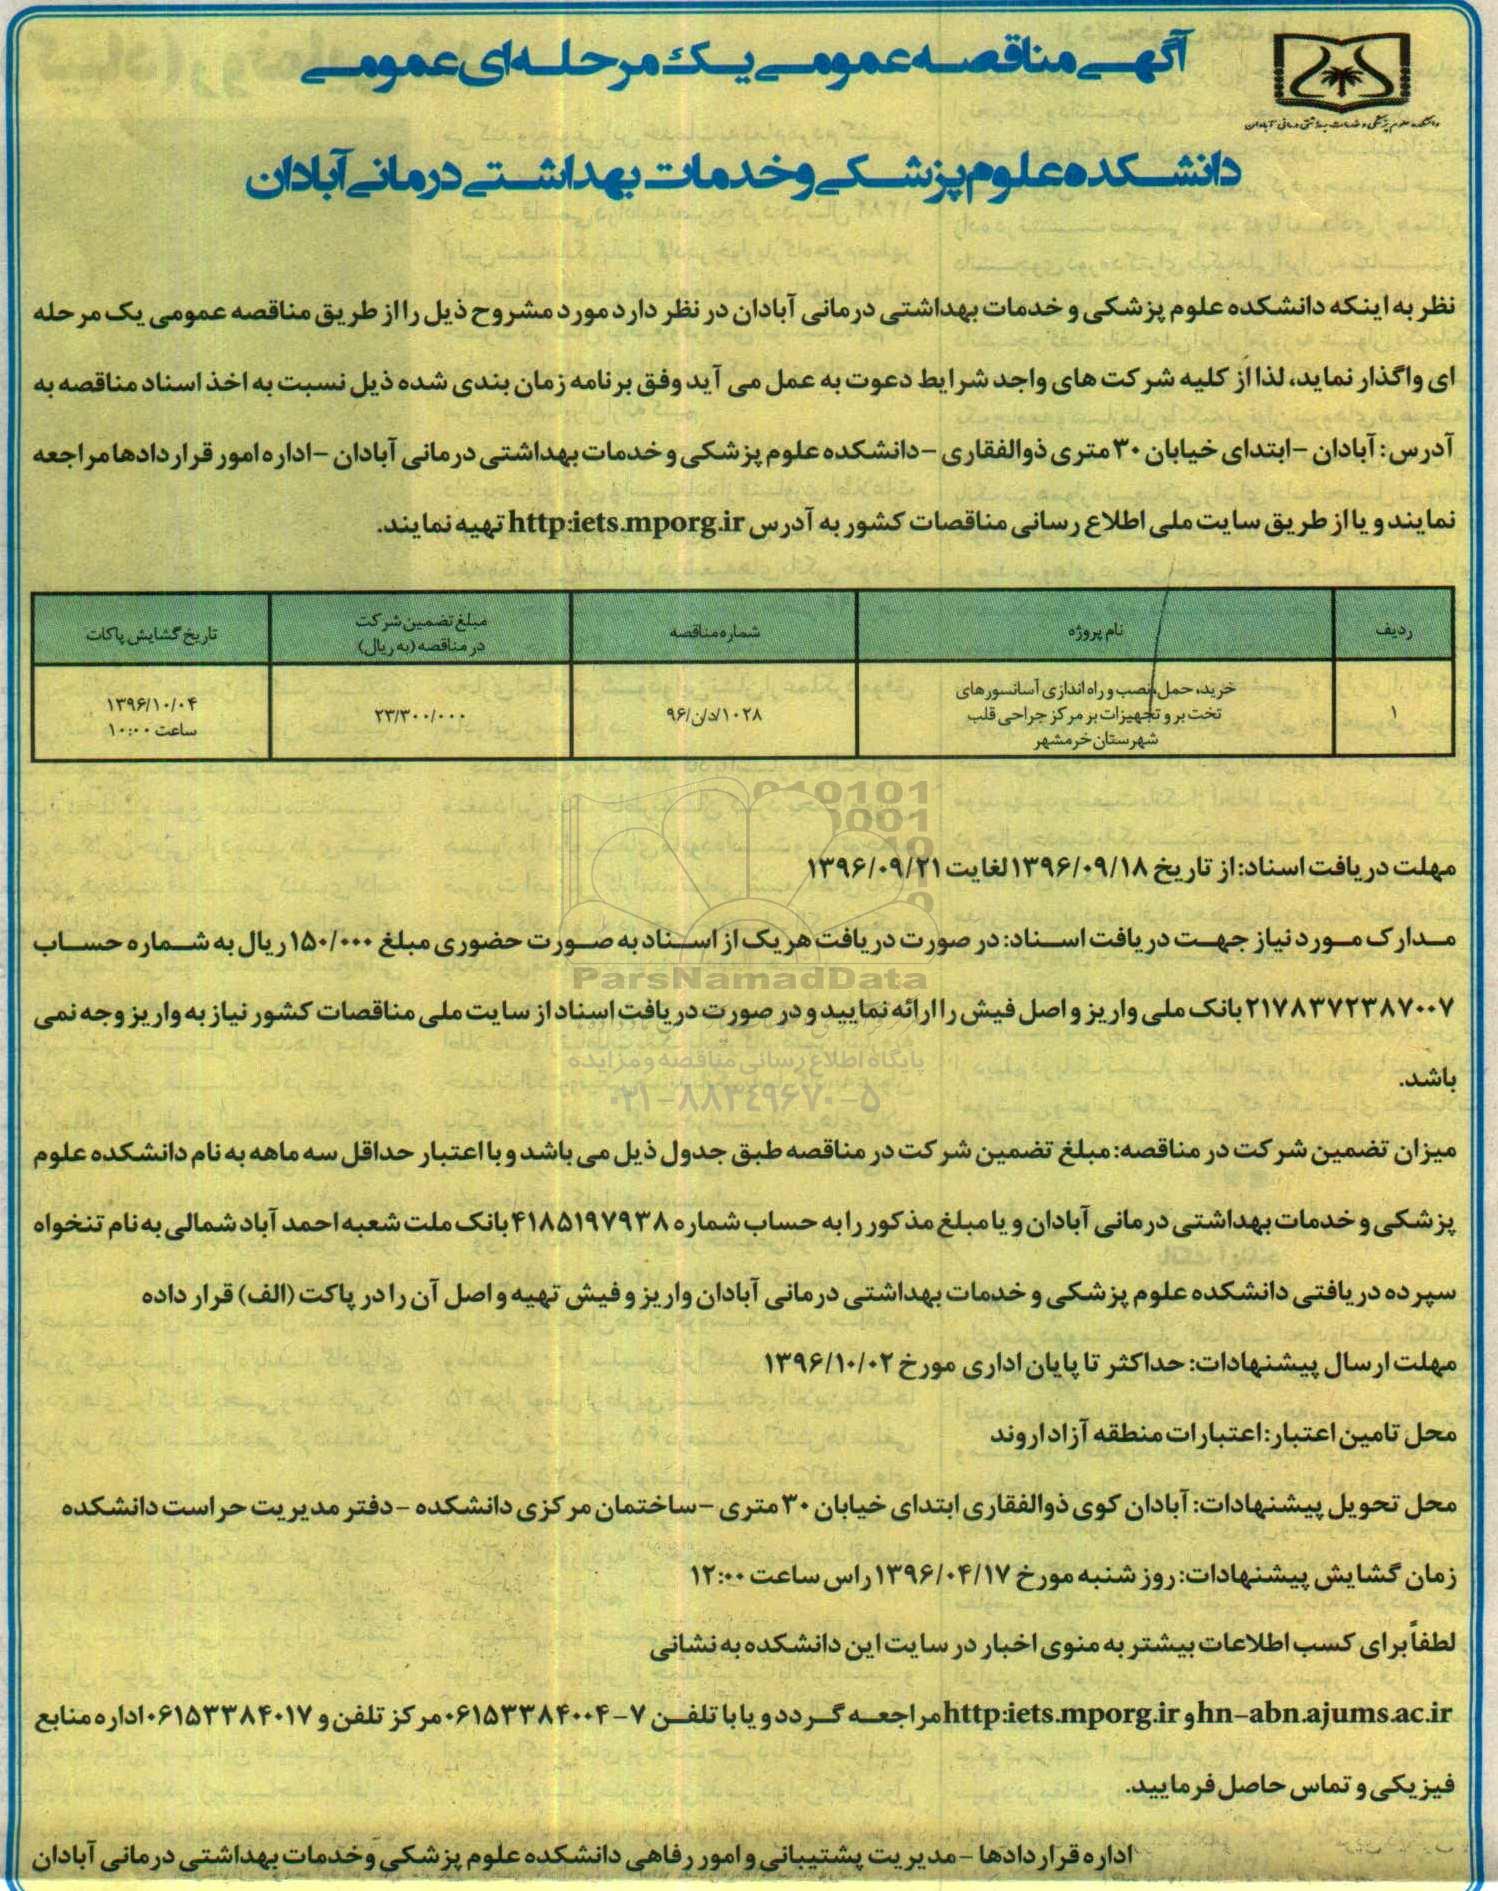 آگهی مناقصه عمومی یک مرحله ای عمومی
دانشکده علوم پزشکی و خدمات بهداشتی درمانی آبادان
دانشکده علوم پزشکی و خدمات بهداشتی درمانی آبادان
نظر به اینکه دانشکده علوم پزشکی و خدمات بهداشتی درمانی آبادان در نظر دارد مورد مشروح ذیل را از طریق مناقصه عمومی یک مرحله
ای واگذار نماید، لذا از کلیه شرکت های واجد شرایط دعوت به عمل می آید وفق برنامه زمان بندی شده ذیل نسبت به اخذ اسناد مناقصه به
آدرس: آبادان -ابتدای خیابان ۳۰ متری ذوالفقاری -دانشکده علوم پزشکی و خدمات بهداشتی درمانی آبادان -اداره امور قراردادها مراجعه
نمایند و یا از طریق سایت ملی اطلاع رسانی مناقصات کشور به آدرس http:iets.mporg.ir تهیه نمایند.
ردیف نام پروژه شماره مناقصه مبلغ تضمین شرکت در مناقصه (به ریال) تاریخ گشایش پاکات
۱ خرید، حمل، نصب و راه اندازی آسانسورهای
تخت بر و تجهیزات بر مرکز جراحی قلب
شهرستان خرمشهر
۱۰۲۸/د/ن/۹۶
۲۳/۳۰۰/۰۰۰
۱۳۹۶/۱۰/۰۴
ساعت ۱۰:۰۰
مهلت دریافت اسناد: از تاریخ ۱۳۹۶/۰۹/۱۸ لغایت ۱۳۹۶/۰۹/۲۱
مدارک مورد نیاز جهت دریافت اسناد: در صورت دریافت هر یک از اسناد به صورت حضوری مبلغ ۱۵۰/۰۰۰ ریال به شماره حساب
۲۱۷۸۳۷۲۳۸۷۰۰۷ بانک ملی واریز و اصل فیش را ارائه نمایید و در صورت دریافت اسناد از سایت ملی مناقصات کشور نیاز به واریز وجه نمی
باشد.
ParsNamadData
پایگاه اطلاع رسانی مناقصه و مزایده
۰۲۱-۸۸۳۴۹۶۷۰-۵
میزان تضمین شرکت در مناقصه: مبلغ تضمین شرکت در مناقصه طبق جدول ذیل می باشد و با اعتبار حداقل سه ماهه به نام دانشکده علوم
پزشکی و خدمات بهداشتی درمانی آبادان و یا مبلغ مذکور را به حساب شماره ۴۱۸۵۱۹۷۹۳۸ بانک ملت شعبه احمد آباد شمالی به نام تنخواه
سپرده دریافتی دانشکده علوم پزشکی و خدمات بهداشتی درمانی آبادان واریز و فیش تهیه و اصل آن را در پاکت (الف) قرار داده
مهلت ارسال پیشنهادات: حداکثر تا پایان اداری مورخ ۱۳۹۶/۱۰/۰۲
محل تامین اعتبار: اعتبارات منطقه آزاد اروند
محل تحویل پیشنهادات: آبادان کوی ذوالفقاری ابتدای خیابان ۳۰ متری -ساختمان مرکزی دانشکده -دفتر مدیریت حراست دانشکده
زمان گشایش پیشنهادات: روز شنبه مورخ ۱۳۹۶/۰۴/۱۷ راس ساعت ۱۲:۰۰
لطفاً برای کسب اطلاعات بیشتر به منوی اخبار در سایت این دانشکده به نشانی
hn-abn.ajums.ac.ir و http:iets.mporg.ir مراجعه گردد و یا با تلفن ۷-۰۶۱۵۳۳۸۴۰۰۴ مرکز تلفن و ۰۶۱۵۳۳۸۴۰۱۷ اداره منابع
فیزیکی و تماس حاصل فرمایید.
اداره قراردادها -مدیریت پشتیبانی و امور رفاهی دانشکده علوم پزشکی و خدمات بهداشتی درمانی آبادان